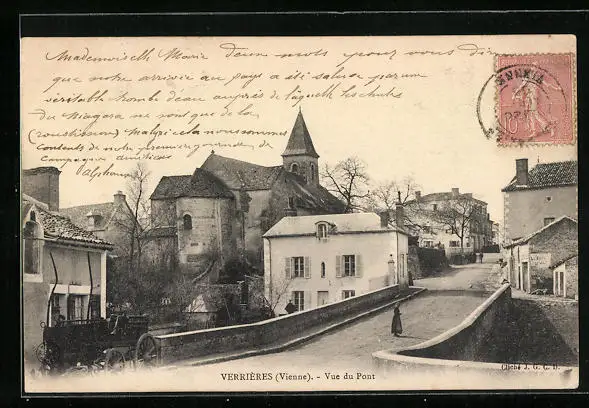 Mademoiselle Marie Deux mots pour vous di
que notre arrivée au pays a été saluée par un
véritable trombe d'eau auprès de laquelle les chutes
du Niagara ne sont que de la
(roustission) Malgré cela nous sommes
contents de notre première grande
campagne
Alphonse
10
VERRIÈRES (Vienne). - Vue du Pont
Cliché J. G. C. D.